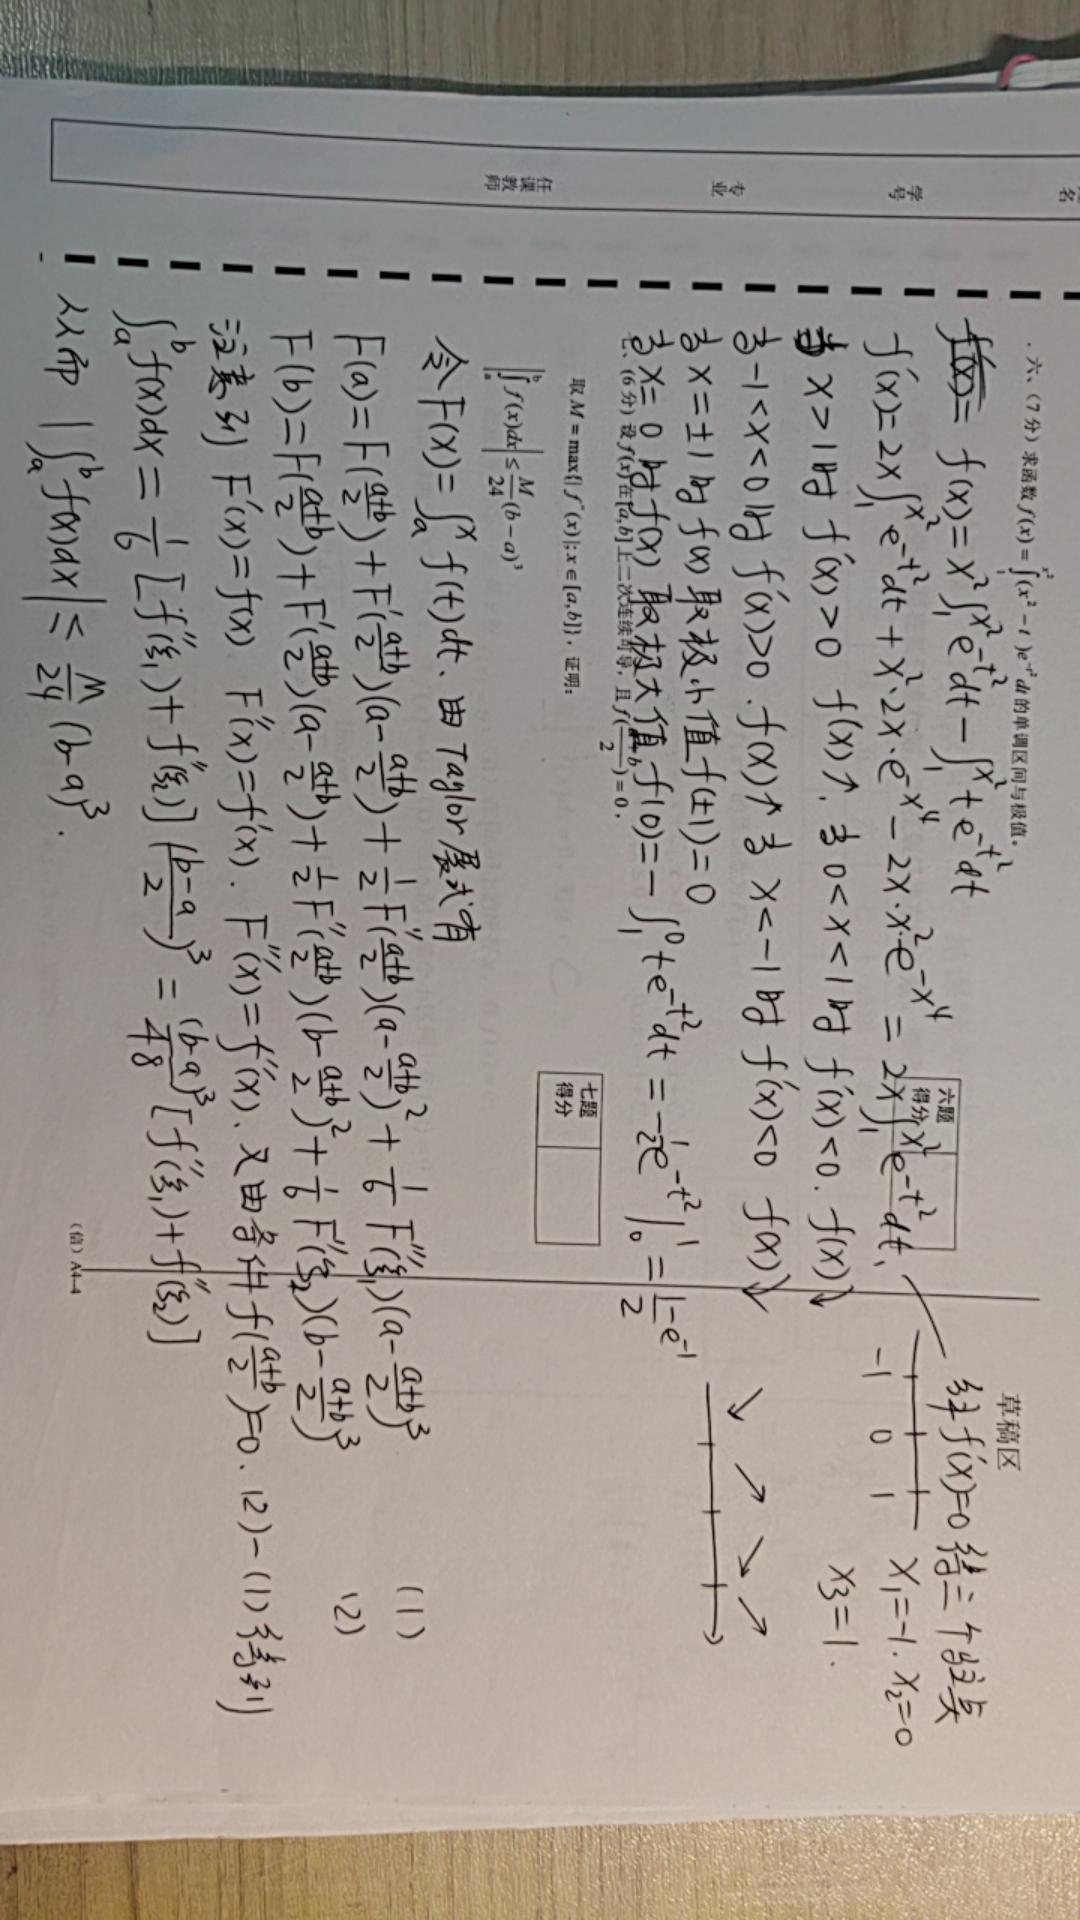 名
学号
专业
任课教师
六、（7分）求函数 f(x) = ∫₁^{x²} (x² − t)e^{−t²}dt 的单调区间与极值。
六题得分
f(x) = x²∫₁^{x²} e^{-t²}dt − ∫₁^{x²} te^{-t²}dt
f'(x) = 2x∫₁^{x²} e^{-t²}dt + x²·2x·e^{-x⁴} − 2x·x²·e^{-x⁴} = 2x∫₁^{x²} e^{-t²}dt、
当 x>1时 f'(x)>0 f(x)↑. 当 0<x<1时 f'(x)<0. f(x)↓
当 -1<x<0时 f'(x)>0. f(x)↑ 当 x<-1时 f'(x)<0 f(x)↓
当 x=±1时 f(x) 取极小值 f(±1)=0
当 x=0 时 f(x) 取极大值 f(0) = −∫₁⁰ te^{-t²}dt = −½e^{-t²}|₀¹ = (1−e^{-1})/2
草稿区
令 f'(x)=0 得三个驻点
x₁=-1. x₂=0
x₃=1.
-1 0 1
↘ ↗ ↘ ↗
七、（6分）设 f(x) 在[a,b]上二次连续可导，且 f((a+b)/2) = 0，
取 M = max{|f''(x)|; x∈[a,b]}，证明：
|∫ₐᵇ f(x)dx| ≤ M/24 (b−a)³
七题得分
令 F(x) = ∫ₐˣ f(t)dt、由 Taylor 展式有
F(a) = F((a+b)/2) + F'((a+b)/2)(a−(a+b)/2) + ½F''((a+b)/2)(a−(a+b)/2)² + 1/6 F'''(ξ₁)(a−(a+b)/2)³ (1)
F(b) = F((a+b)/2) + F'((a+b)/2)(b−(a+b)/2) + ½F''((a+b)/2)(b−(a+b)/2)² + 1/6 F'''(ξ₂)(b−(a+b)/2)³ (2)
注意到 F'(x)=f(x). F''(x)=f'(x). F'''(x)=f''(x)、又由条件 f((a+b)/2)=0、(2)−(1)得到
∫ₐᵇ f(x)dx = 1/6 [f''(ξ₁)+f''(ξ₂)] ((b−a)/2)³ = (b−a)³/48 [f''(ξ₁)+f''(ξ₂)]
从而 |∫ₐᵇ f(x)dx| ≤ M/24 (b−a)³.
（信）A4−4